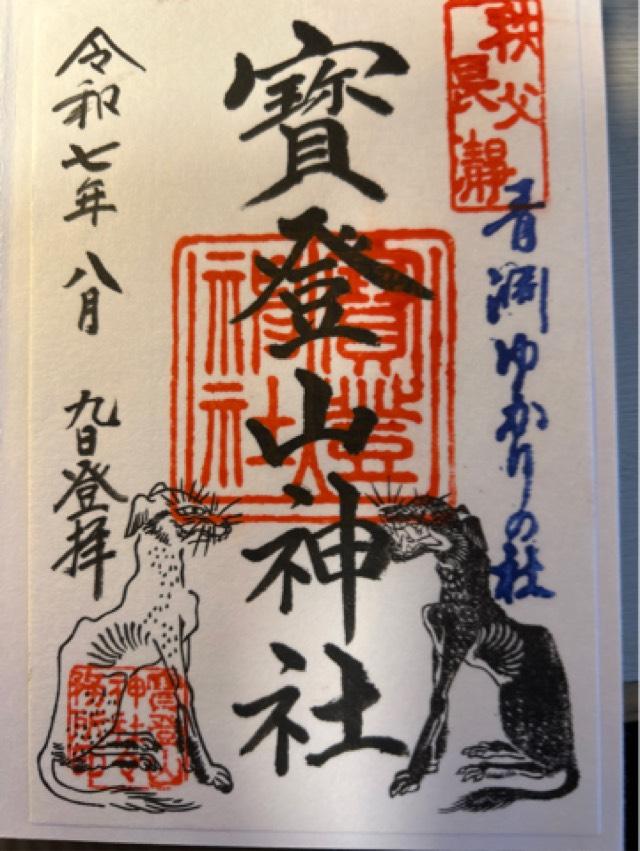 秩父
長瀞
青淵ゆかりの社
寳登山神社
寳登
山神
社
令和七年八月九日登拝
寳登山
神社々
務所印